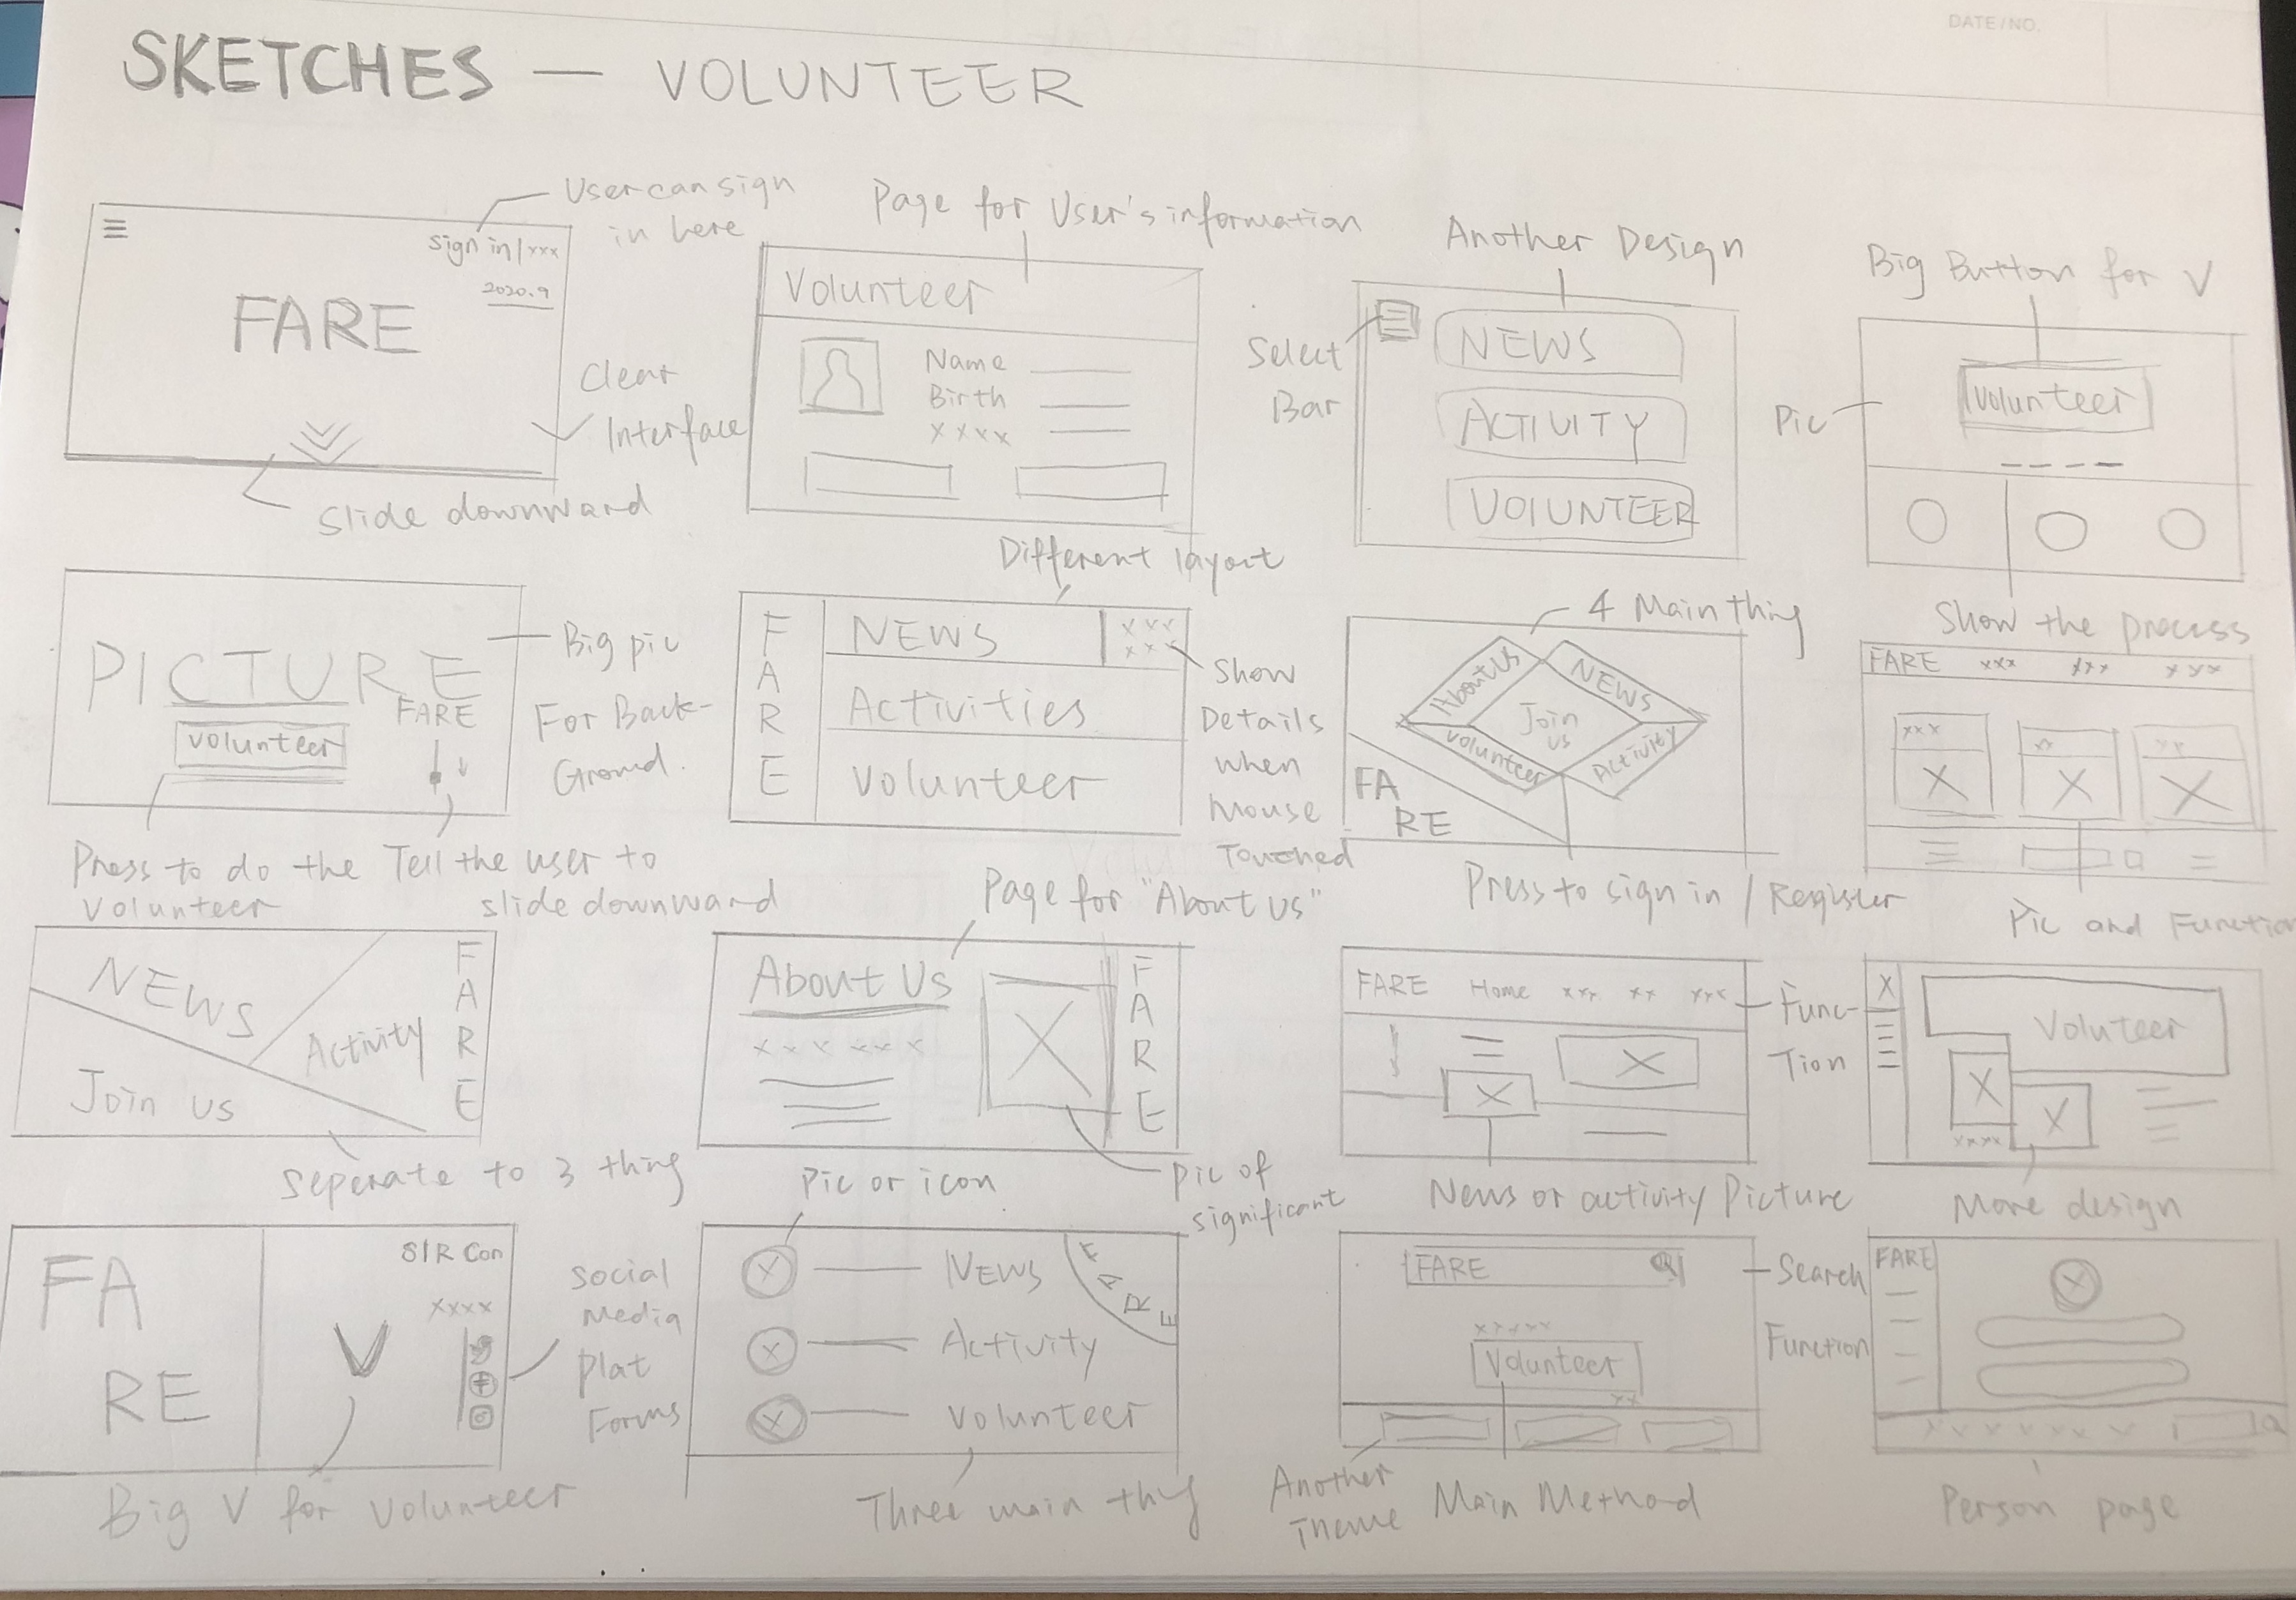 DATE/NO.
SKETCHES — VOLUNTEER
User can sign
in here
sign in/xxx
2020.9
FARE
Clear
Interface
Slide downward
Page for User's information
Volunteer
Name
Birth
XXXX
Another Design
Select
Bar
NEWS
ACTIVITY
VOLUNTEER
Big Button for V
Pic
Volunteer
Show the process
PICTURE
FARE
volunteer
Big pic
For Back-
Ground.
Press to do the
volunteer
Tell the user to
slide downward
Different layout
FARE
NEWS
xxx
xxx
Activities
Volunteer
Show
Details
when
Mouse
Touched
4 Main thing
About Us
NEWS
Join
us
Volunteer
Activity
FA
RE
Press to sign in / Register
FARE xxx xxx xxx
xxx
xx
xx
X
X
X
Pic and Function
NEWS
Activity
Join us
FARE
seperate to 3 thing
Page for "About us"
About Us
xxxxxx
X
FARE
Pic of
significant
FARE Home xxx xx xxx
X
X
Func-
Tion
News or activity Picture
X
Voluteer
X
X
xxxx
More design
FA
RE
V
S/R Con
xxxx
social
Media
Plat
Forms
Big V for volunteer
Pic or icon
X
NEWS
X
Activity
X
Volunteer
FARE
Three main thing
FARE
xxxxx
Volunteer
xx
Search
Function
Another
Theme
Main Method
FARE
X
xxxxxxx
Person page